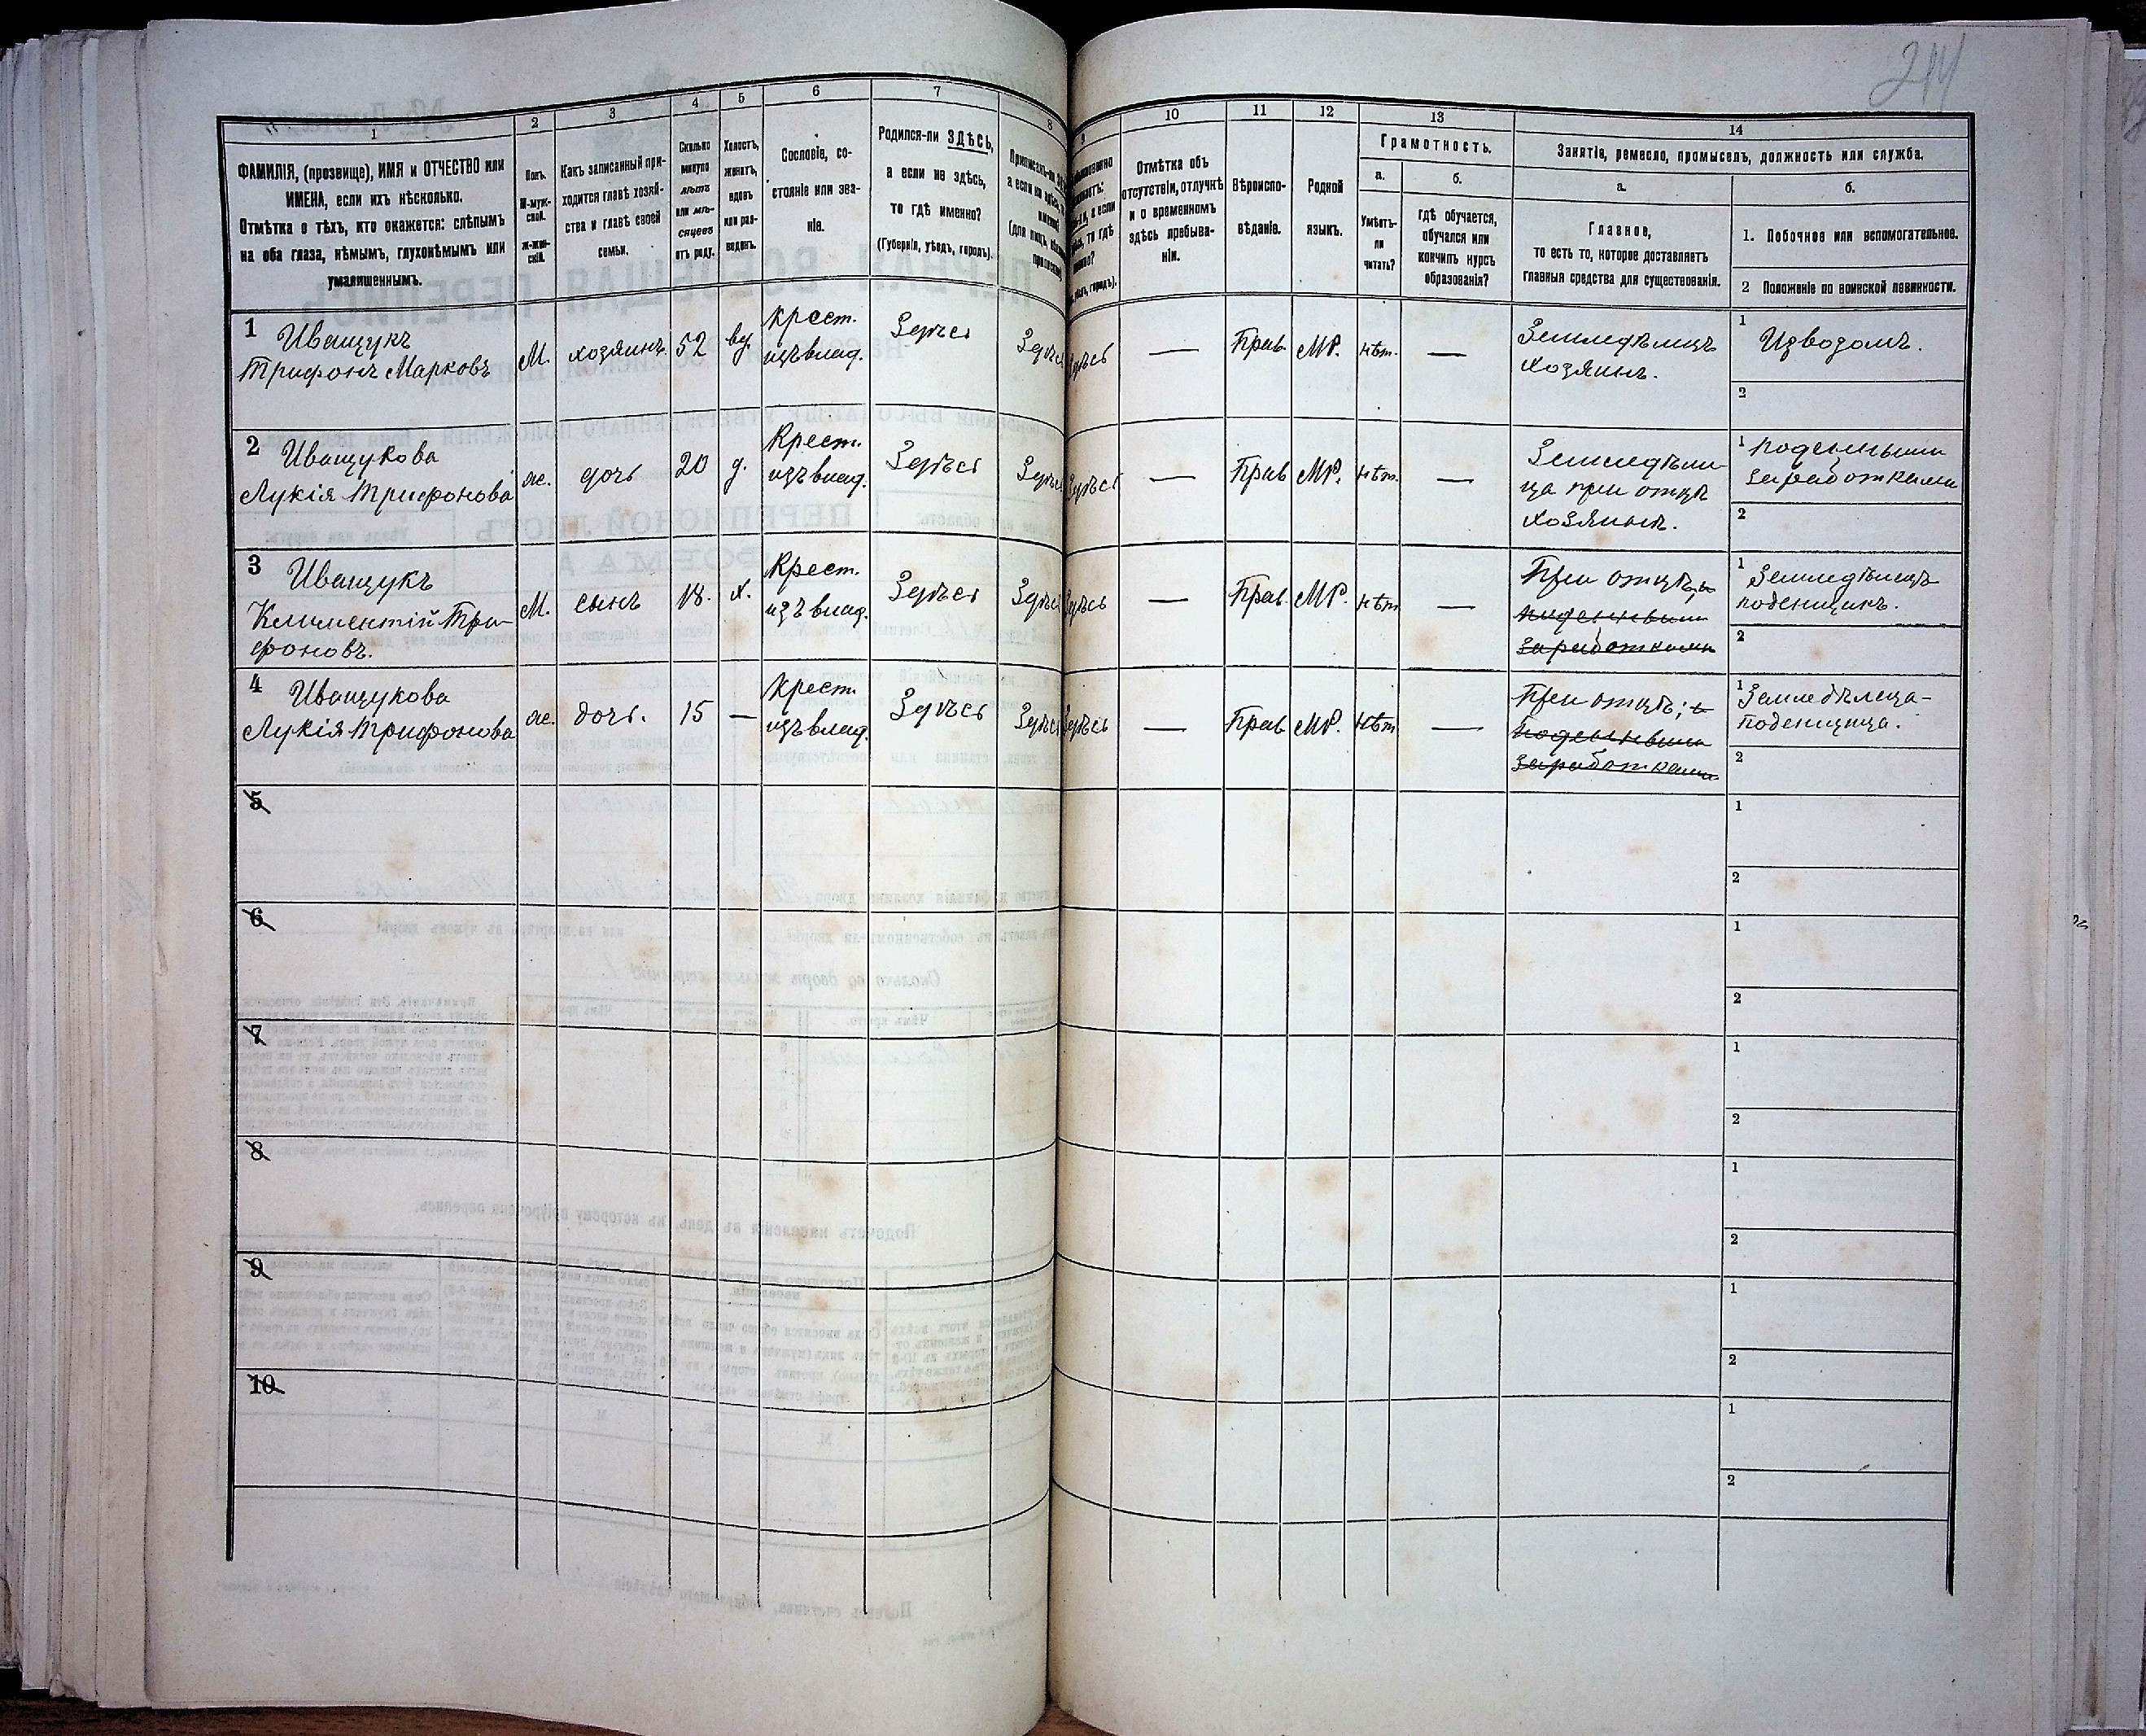 214
1
ФАМИЛІЯ, (прозвище), ИМЯ и ОТЧЕСТВО или
ИМЕНА, если ихъ нѣсколько.
Отмѣтка о тѣхъ, кто окажется: слѣпымъ
на оба глаза, нѣмымъ, глухонѣмымъ или
умалишеннымъ.
2
Полъ.
М-муж-
ской.
ж-жен-
скій.
3
Какъ записанный при-
ходится главѣ хозяй-
ства и главѣ своей
семьи.
4
Сколько
минуло
лѣтъ
или мѣ-
сяцевъ
отъ роду.
5
Холостъ,
женатъ,
вдовъ
или раз-
веденъ.
6
Сословіе, со-
стояніе или зва-
ніе.
7
Родился-ли ЗДѢСЬ,
а если не здѣсь,
то гдѣ именно?
(Губернія, уѣздъ, городъ).
8
9
10
Отмѣтка объ
отсутствіи, отлучкѣ
и о временномъ
здѣсь пребыва-
ніи.
11
Вѣроиспо-
вѣданіе.
12
Родной
языкъ.
13
Грамотность.
а.
Умѣетъ-
ли
читать?
б.
гдѣ обучается,
обучался или
кончилъ курсъ
образованія?
14
Занятіе, ремесло, промыселъ, должность или служба.
а.
Главное,
то есть то, которое доставляетъ
главныя средства для существованія.
б.
1. Побочное или вспомогательное.
2 Положеніе по воинской повинности.
1 Иващукъ
Трифонъ Марковъ
М.
хозяинъ
52
вд.
крест.
изъ влад.
Здѣсь
Здѣсь
Здѣсь
—
Прав.
МР.
нѣт.
—
Земледѣлецъ
хозяинъ.
1 Извозомъ.
2
2 Иващукова
Лукія Трифонова
ж.
дочь
20
д.
Крест.
изъ влад.
Здѣсь
Здѣсь
Здѣсь
—
Прав
МР.
нѣт.
—
Земледѣли-
ца при отцѣ
хозяинѣ.
1 Поденными
заработками
2
3 Иващукъ
Климентій Три-
фоновъ.
М.
сынъ
18.
х.
Крест.
изъ влад.
Здѣсь
Здѣсь
Здѣсь
—
Прав.
МР.
нѣт
—
При отцѣ, и
поденными
заработками
1 Земледѣлецъ
поденщикъ.
2
4 Иващукова
Лукія Трифонова
ж.
дочь.
15
—
крест.
изъ влад.
Здѣсь
Здѣсь
Здѣсь
—
Прав
МР.
нѣт
—
При отцѣ; и
поденными
заработками
1 Земледѣлица-
поденщица.
2
5
1
2
6
1
2
7
1
2
8
1
2
9
1
2
10
1
2